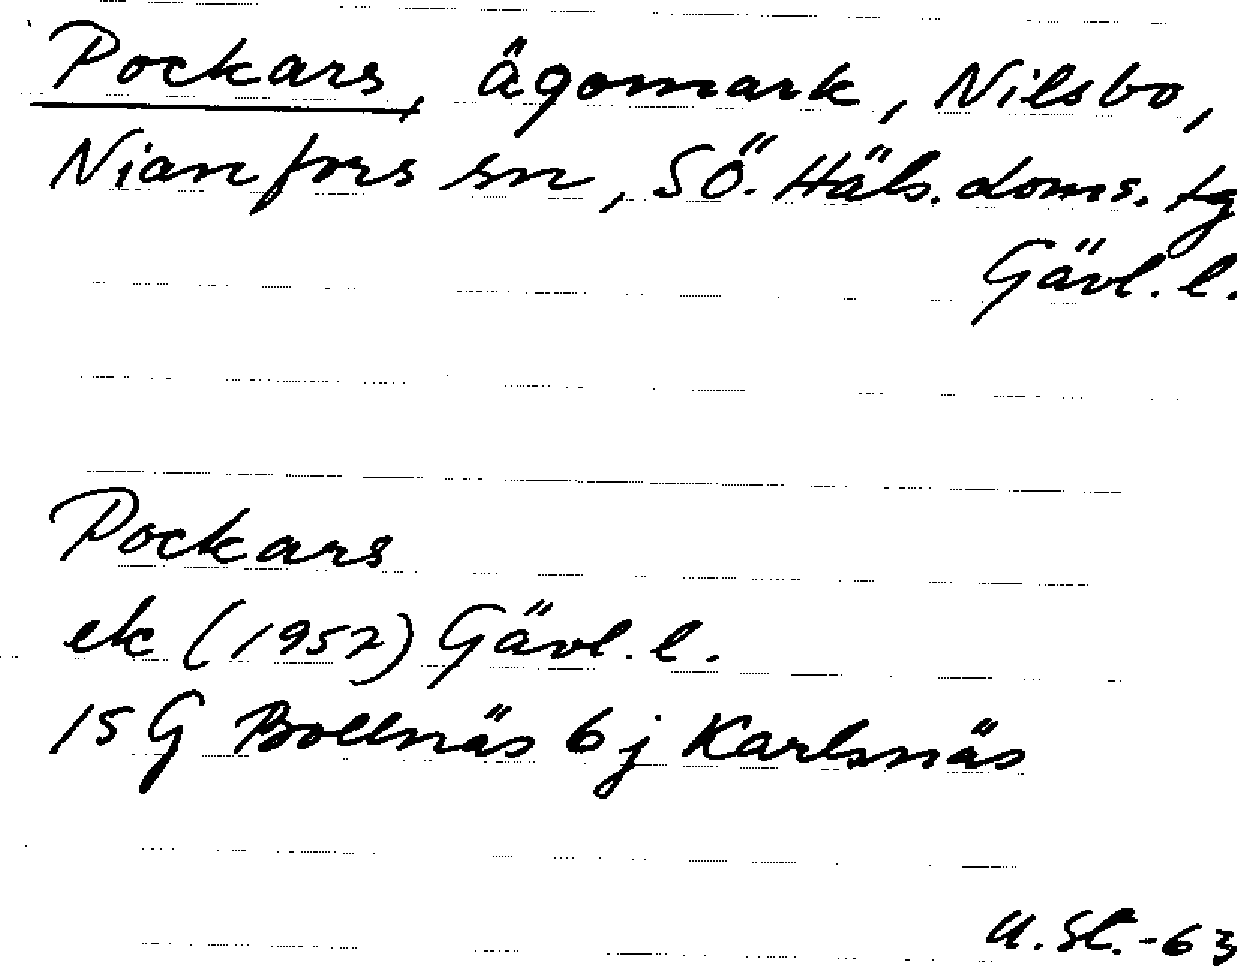 Pockars, ägomark, Nilsbo,
Nianfors sn, SÖ. Häls. doms. tg
Gävl. l.
Pockars
ek (1952) Gävl. l.
15 G Bollnäs 6 j Karlsnäs
U. St.-63